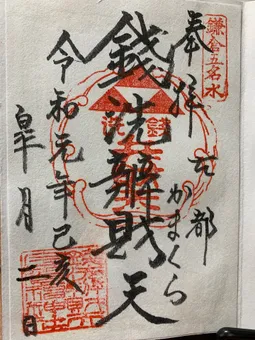 鎌倉五名水
奉拝
古都
かまくら
銭洗
銭洗辨財天
令和元年己亥
皐月二日